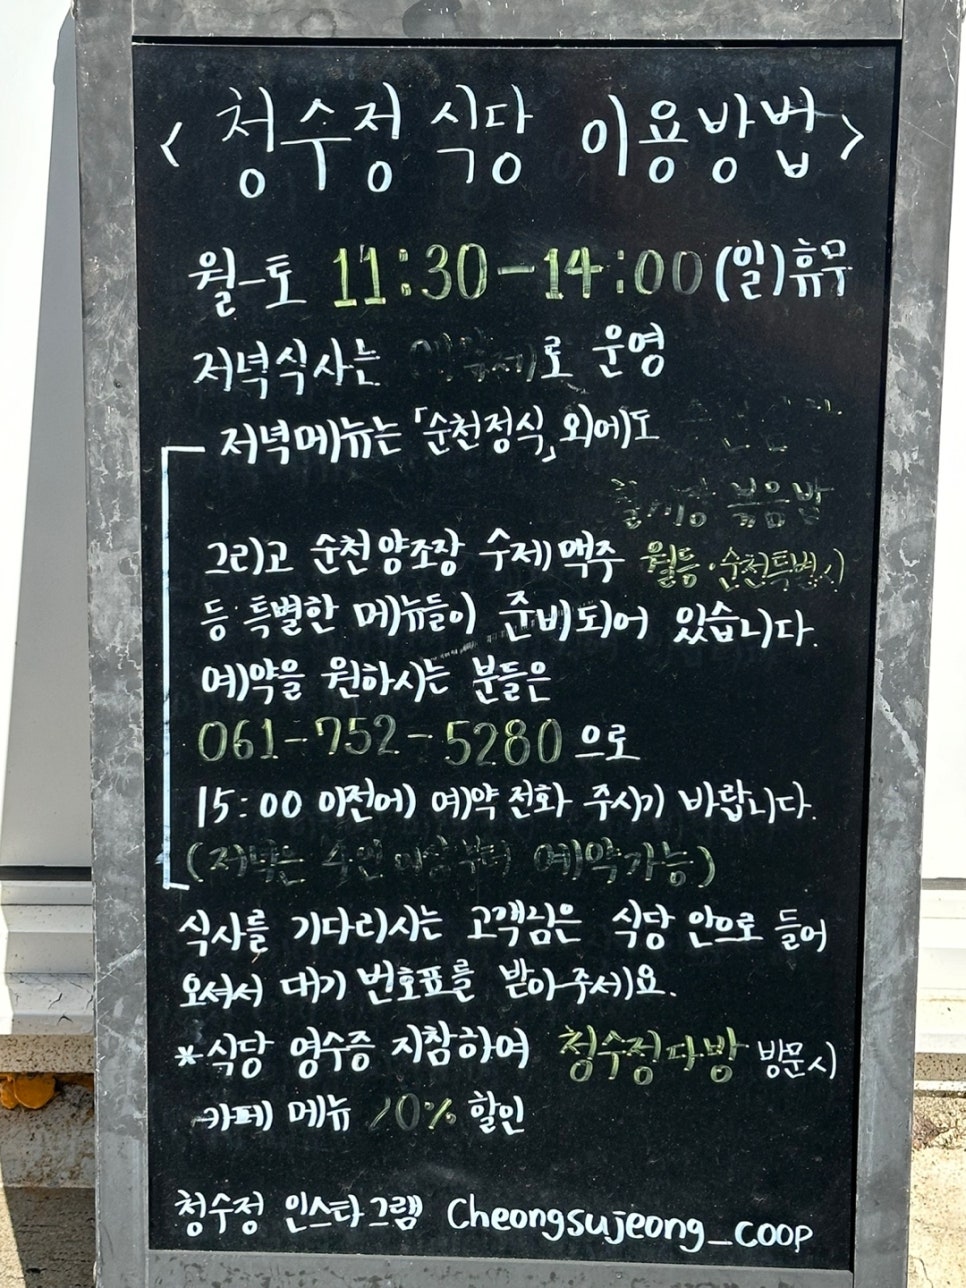 <청수정 식당 이용방법>
월-토 11:30-14:00 (일)휴무
저녁식사는 예약제로 운영
저녁메뉴는 「순천정식」 외에도
볶음밥
그리고 순천양조장 수제맥주 월등·순천특별시
등 특별한 메뉴들이 준비되어 있습니다.
예약을 원하시는 분들은
061-752-5280 으로
15:00 이전에 예약 전화 주시기 바랍니다.
(저녁은 4인 이상부터 예약가능)
식사를 기다리시는 고객님은 식당 안으로 들어
오셔서 대기 번호표를 받아주세요.
*식당 영수증 지참하여 청수정다방 방문시
카페 메뉴 % 할인
청수정 인스타그램 Cheongsujeong_coop